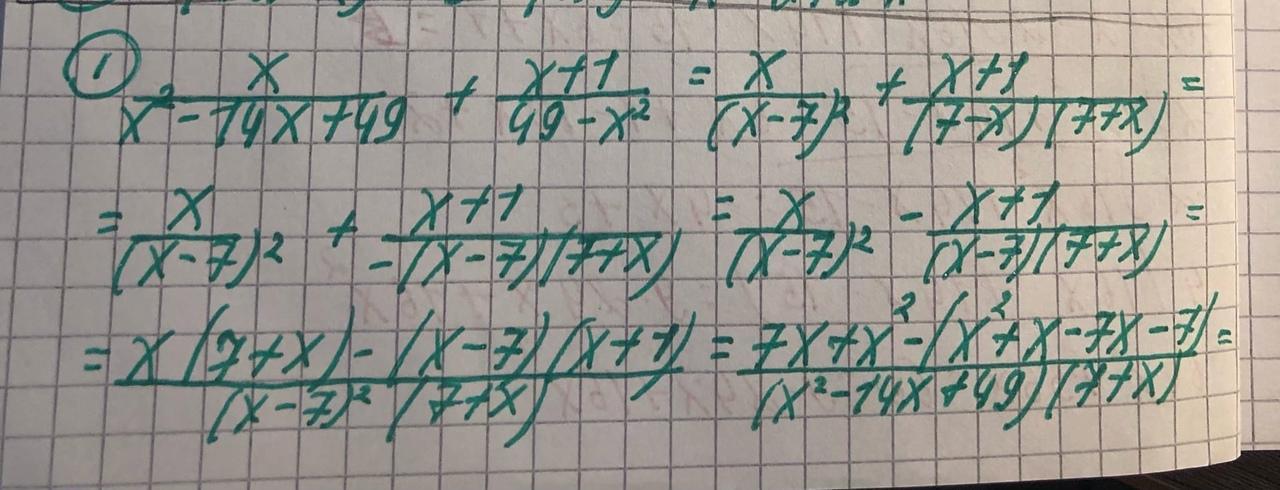 ① x/(x² - 14x + 49) + (x+1)/(49 - x²) = x/(x-7)² + (x+1)/((7-x)(7+x)) =
= x/(x-7)² + (x+1)/(-(x-7)(7+x)) = x/(x-7)² - (x+1)/((x-7)(7+x)) =
= (x(7+x) - (x-7)(x+1))/((x-7)²(7+x)) = (7x + x² - (x² + x - 7x - 7))/((x² - 14x + 49)(7+x)) =